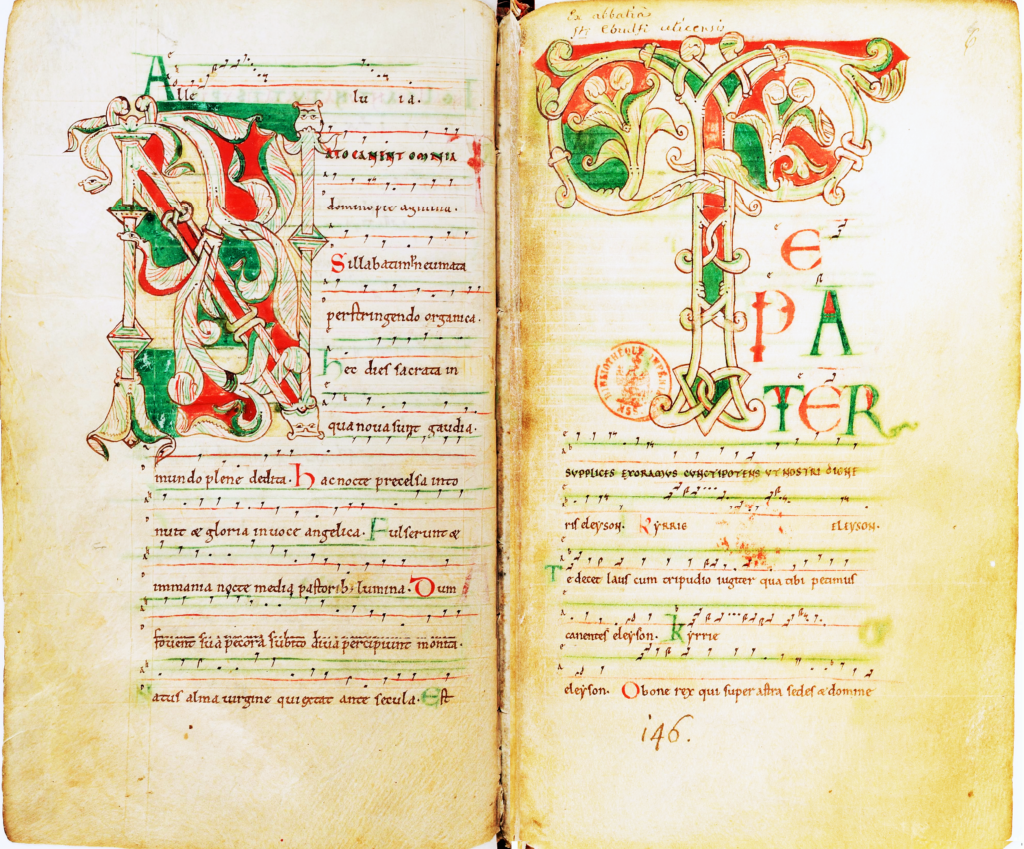 Alleluia.
NATO CANENT OMNIA
domino pie agmina.
Sillabatim neumata
perstringendo organica.
Hęc dies sacrata in
qua nova sunt gaudia.
mundo plene dedita. hac nocte precelsa into
nuit & gloria in voce angelica. Fulserunt &
immania nocte media pastorib; lumina. Dum
fovent sua pecora subito diva percipiunt monita.
Natus alma virgine qui extat ante secula. Est
Ex abbatia
sti Ebrulfi uticensis
TE
PA
TER
SUPPLICES EXORAMUS CUNCTIPOTENS UT NOSTRI DIGNE
ris eleyson. kyrrie eleyson.
Te decet laus cum tripudio iugiter qua tibi petimus
canentes eleyson. kyrrie
eleyson. O bone rex qui super astra sedes & domine
146.